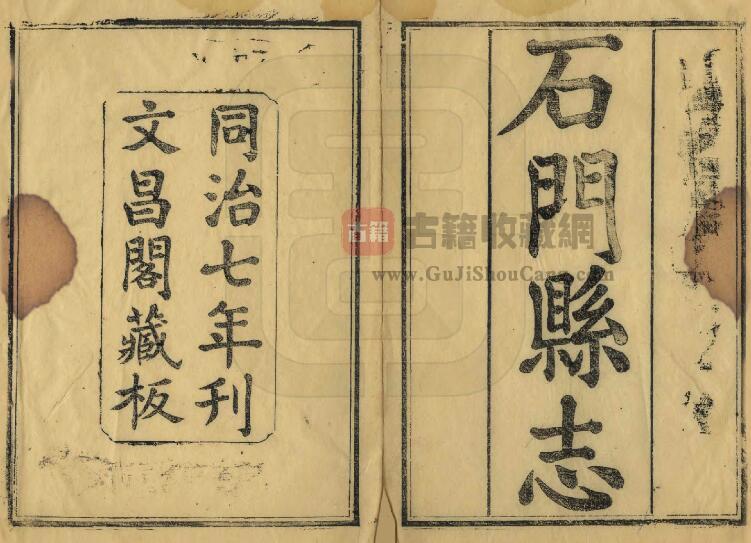 石門縣志
同治七年刊
文昌閣藏板
古籍
古籍收藏網
www.GuJiShouCang.com